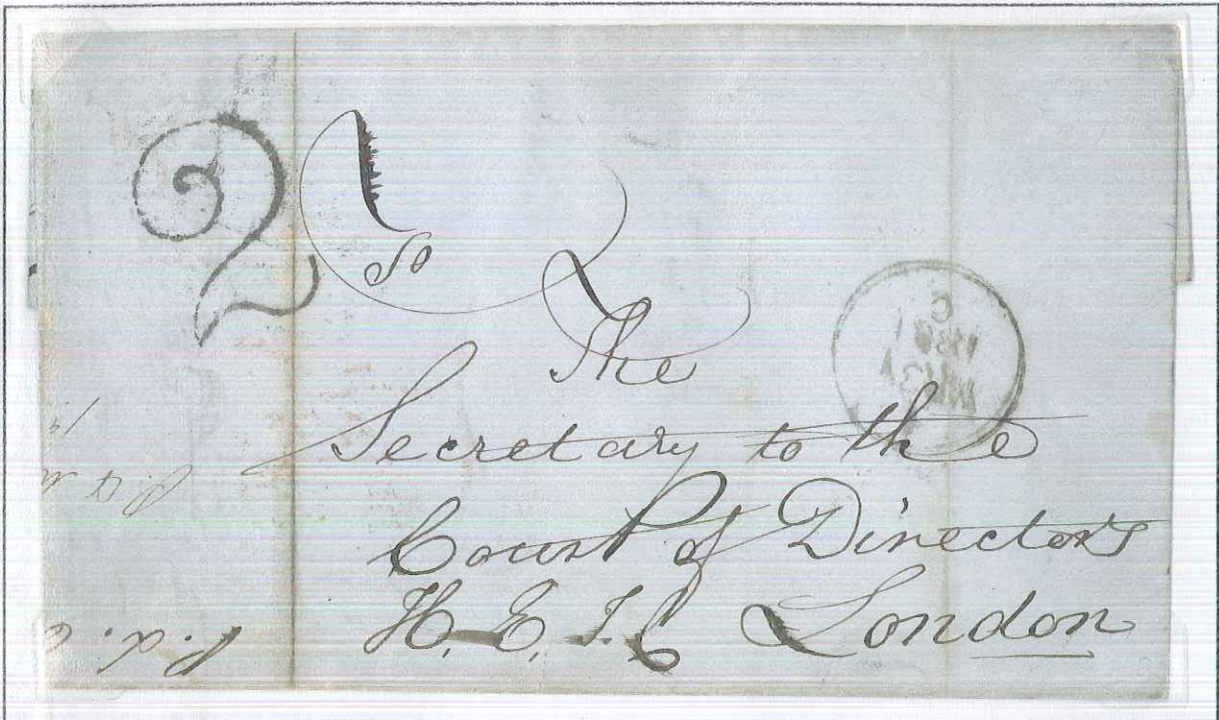 2
To
The
Secretary to the
Court of Directors
H. E. I. C London